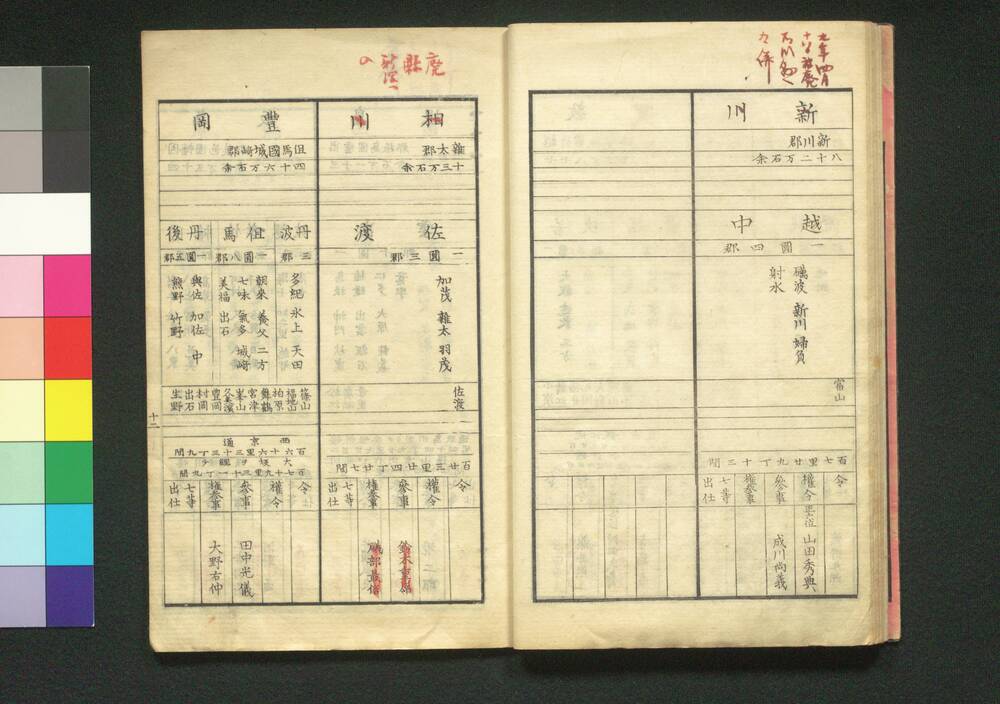 新川
新川郡
八十二万石余
越中
一圓四郡
礪波 新川 婦負
射水
富山
百七里廿九丁十三間
令
權令
山田秀典
參事
成川尚義
權參事
七等
出仕
廃
縣
相川
雜太郡
十三万石余
佐渡
一圓三郡
加茂 雜太 羽茂
佐渡
百廿三里廿四丁廿七間
令
權令
參事
鈴木重嶺
權參事
磯部最信
七等
出仕
豐岡
但馬國城崎郡
四十六万石余
丹波
三郡
多紀 氷上 天田
但馬
一圓八郡
朝來 養父 二方
七味 氣多 城崎
美福 出石
丹後
一圓五郡
與佐 加佐 中
熊野 竹野
篠山
福地山
柏原
舞鶴
宮津
峯山
久美濱
豐岡
村岡
出石
生野
西京通
百六十六里三十三丁九間
百七十九里三十一丁九間
令
權令
參事
田中光儀
權參事
大野右仲
七等
出仕
十二